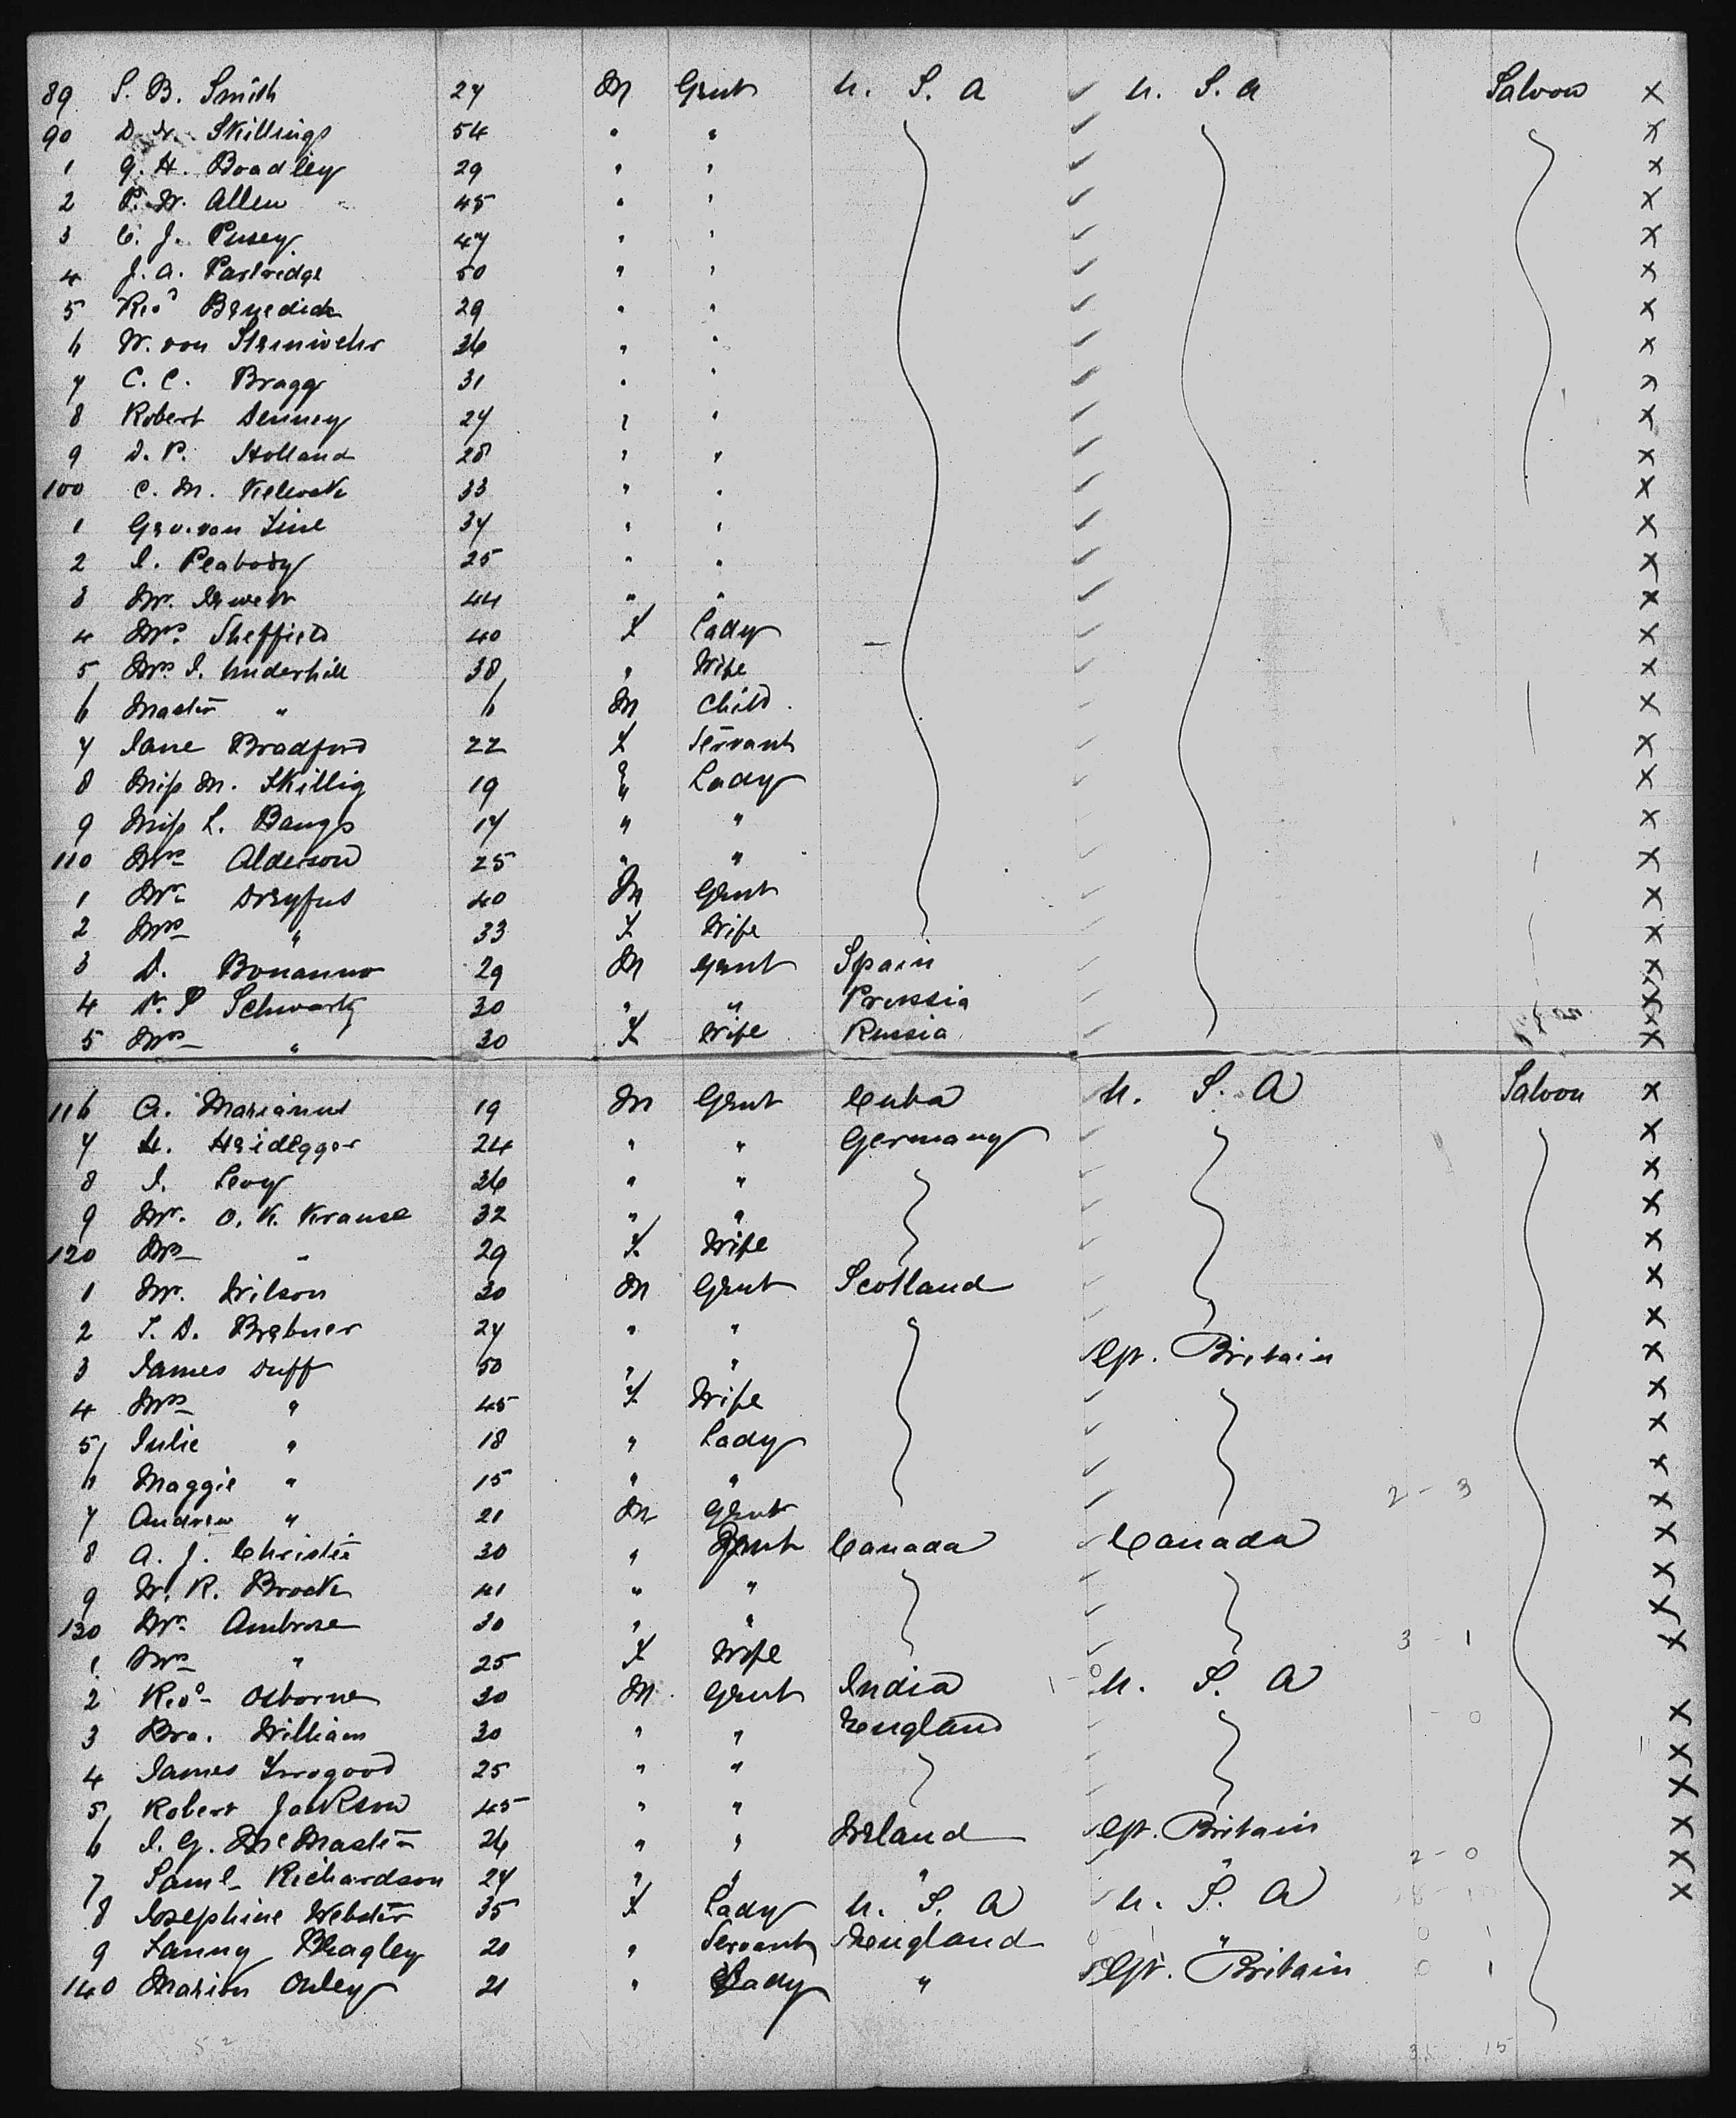 89 S. B. Smith 27 M Gent U. S. A U. S. A Saloon X
90 D. N. Skillings 54 " " X
1 G. H. Boadley 29 " " X
2 P. W. Allen 45 " " X
3 C. J. Pusey 47 " " X
4 J. A. Partridge 50 " " X
5 Revd Benedict 29 " " X
6 W. von Steinwehr 36 " " X
7 C. C. Bragg 31 " " X
8 Robert Denney 27 " " X
9 D. P. Holland 28 " " X
100 C. M. 33 " " X
1 Geo. van 37 " " X
2 I. Peabody 25 " " X
3 Mr. Jewett 44 " " X
4 Mrs. Sheffield 40 F Lady X
5 Mrs I. Underhill 38 " Wife X
6 Master " 6 M Child X
7 Jane Bradford 22 F Servant X
8 Miss M. Skillig 19 " Lady X
9 Miss L. Bangs 17 " " X
110 Mrs Alderson 25 " " X
1 Mr Dreyfus 40 M Gent X
2 Mrs " 33 F Wife X
3 D. Bonanno 29 M Gent Spain X
4 Schwartz 30 " " Prussia X
5 Mrs " 30 F Wife Russia X
116 A. 19 M Gent Cuba U. S. A Saloon X
7 H. Heidegger 24 " " Germany X
8 I. Levy 36 " " X
9 Mr. O. K. Krause 32 " " X
120 Mrs " 29 F Wife X
1 Mr. Wilson 30 M Gent Scotland X
2 T. D. Brebner 27 " " X
3 James Duff 50 " " Gt. Britain X
4 Mrs " 45 F Wife X
5 Julie " 18 " Lady X
6 Maggie " 15 " " X
7 Andrew " 21 M Gent 2 - 3 X
8 A. J. Christie 30 " Gent Canada Canada X
9 W. R. Brock 41 " " X
130 Mr. Ambrose 30 " " X
1 Mrs " 25 F Wife 3 - 1 X
2 Revd Osborne 30 M Gent India 1 - 0 U. S. A
3 Bro. William 30 " " England 1 - 0 X
4 James 25 " " X
5 Robert Jackson 45 " " X
6 I. G. McMaster 26 " " Ireland Gt. Britain X
7 Saml Richardson 27 " " " " 2 - 0 X
8 Josephine Webster 35 F Lady U. S. A U. S. A X
9 Fanny Beagley 20 " Servant England " 0 1
140 Marion Oxley 21 " Lady " Gt. Britain 0 1
52 15